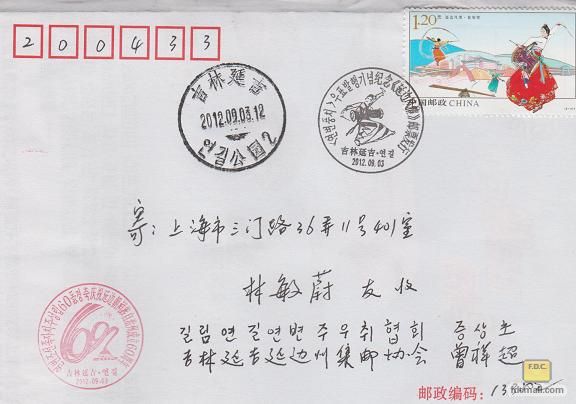 200433
1.20元
中国邮政 CHINA
吉林延吉
2012.09.03.12
吉林延吉·연길
2012.09.03
寄: 上海市三门路36弄11号401室
林敏蔚 友收
길림 연길 연변주우취협회 증상초
吉林延吉延边州集邮协会 曾祥超
60
吉林延吉·연길
2012.09.03
邮政编码:
F.D.C.
fdcmall.com